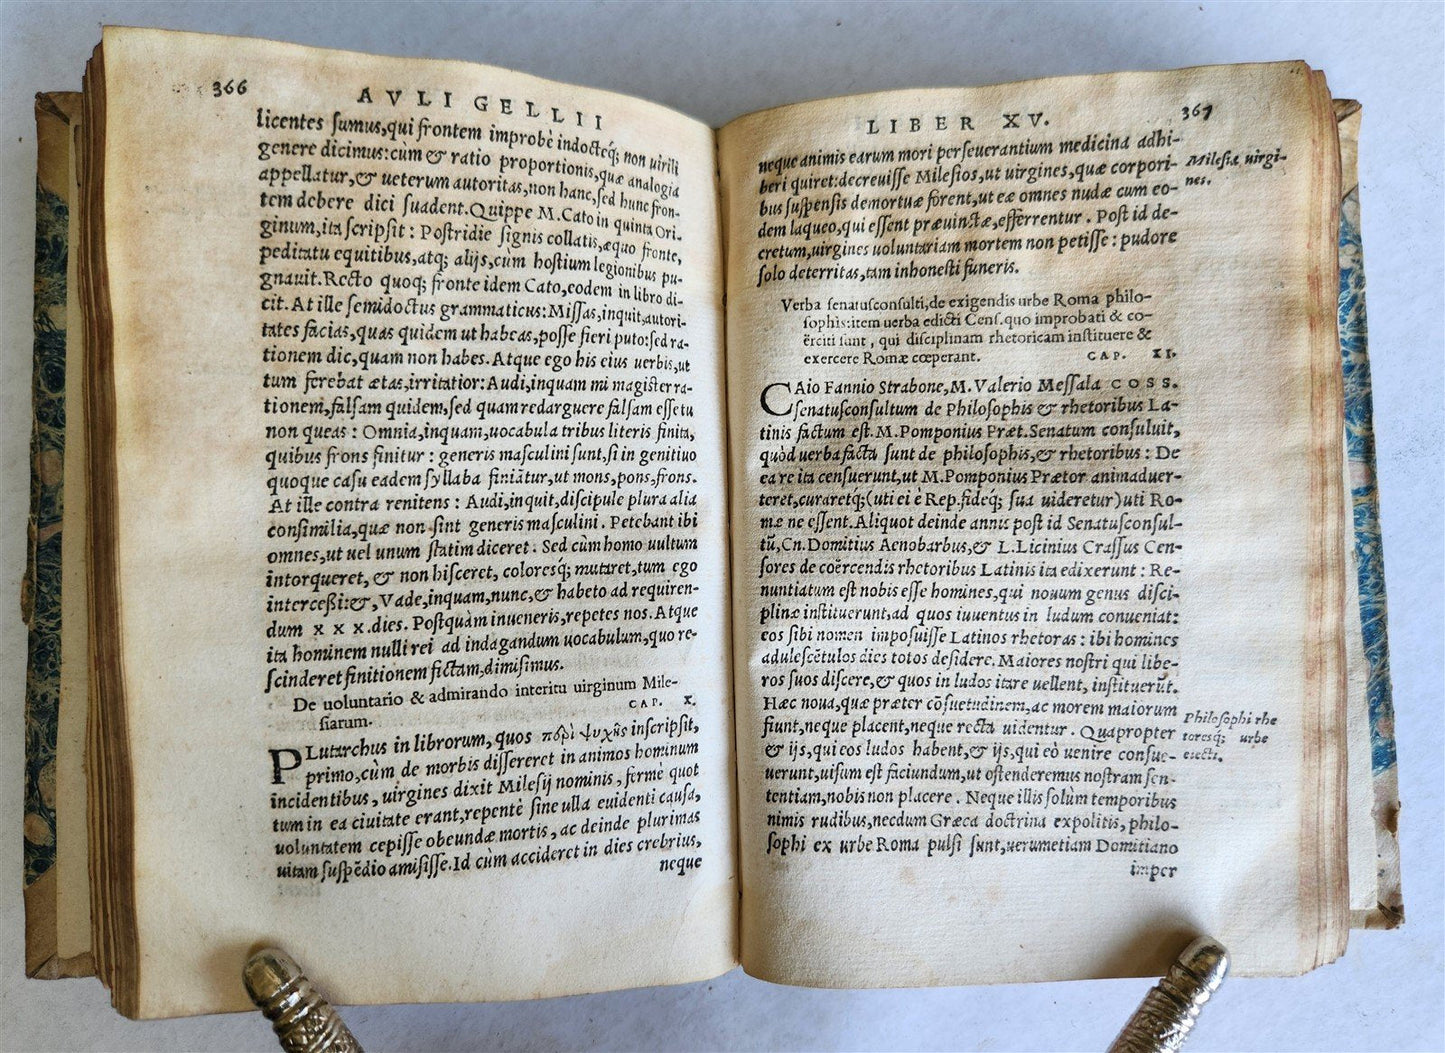 366
AVLI GELLII
licentes sumus, qui frontem improbè indocteq; non uirili
genere dicimus: cùm & ratio proportionis, quæ analogia
appellatur, & ueterum autoritas, non hanc, sed hunc fron-
tem debere dici suadent. Quippe M. Cato in quinta Ori-
ginum, ita scripsit: Postridie signis collatis, æquo fronte,
peditatu equitibus, atq; alijs, cùm hostium legionibus pu-
gnauit. Recto quoq; fronte idem Cato, eodem in libro di-
cit. At ille semidoctus grammaticus: Missas, inquit, autori-
tates facias, quas quidem ut habeas, posse fieri puto: sed ra-
tionem dic, quam non habes. Atque ego his eius uerbis, ut
tum ferebat ætas, irritatior: Audi, inquam mi magister ra-
tionem, falsam quidem, sed quam redarguere falsam esse tu
non queas: Omnia, inquam, uocabula tribus literis finita,
quibus frons finitur: generis masculini sunt, si in genitiuo
quoque casu eadem syllaba finiātur, ut mons, pons, frons.
At ille contra renitens: Audi, inquit, discipule plura alia
consimilia, quæ non sint generis masculini. Petebant ibi
omnes, ut uel unum statim diceret. Sed cùm homo uultum
intorqueret, & non hisceret, coloresq; mutaret, tum ego
intercessi: &, Vade, inquam, nunc, & habeto ad requiren-
dum XXX. dies. Postquàm inueneris, repetes nos. Atque
ita hominem nulli rei ad indagandum uocabulum, quo re-
scinderet finitionem fictam, dimisimus.
De uoluntario & admirando interitu uirginum Mile-
siarum. CAP. X.
PLutarchus in librorum, quos περὶ ψυχῆς inscripsit,
primo, cùm de morbis dissereret in animos hominum
incidentibus, uirgines dixit Milesij nominis, fermè quot
tum in ea ciuitate erant, repentè sine ulla euidenti causa,
uoluntatem cepisse obeundæ mortis, ac deinde plurimas
uitam suspēdio amisisse. Id cum accideret in dies crebrius,
neque
LIBER XV.
367
neque animis earum mori perseuerantium medicina adhi-
beri quiret: decreuisse Milesios, ut uirgines, quæ corpori-
bus suspensis demortuæ forent, ut eæ omnes nudæ cum eo-
dem laqueo, qui essent præuinctæ, efferrentur. Post id de-
cretum, uirgines uoluntariam mortem non petisse: pudore
solo deterritas, tam inhonesti funeris.
Milesiæ uirgi-
nes.
Verba senatusconsulti, de exigendis urbe Roma philo-
sophis: item uerba edicti Cens. quo improbati & co-
ërciti sunt, qui disciplinam rhetoricam instituere &
exercere Romæ cœperant. CAP. XI.
CAio Fannio Strabone, M. Valerio Messala COSS.
senatusconsultum de Philosophis & rhetoribus La-
tinis factum est. M. Pomponius Præt. Senatum consuluit,
quòd uerba facta sunt de philosophis, & rhetoribus: De
ea re ita censuerunt, ut M. Pomponius Prætor animaduer-
teret, curaretq; (uti ei è Rep. fideq; sua uideretur) uti Ro-
mæ ne essent. Aliquot deinde annis post id Senatusconsul-
tū, Cn. Domitius Aenobarbus, & L. Licinius Crassus Cen-
sores de coërcendis rhetoribus Latinis ita edixerunt: Re-
nuntiatum est nobis esse homines, qui nouum genus disci-
plinæ instituerunt, ad quos iuuentus in ludum conueniat:
eos sibi nomen imposuisse Latinos rhetoras: ibi homines
adulescētulos dies totos desidere. Maiores nostri qui libe-
ros suos discere, & quos in ludos itare uellent, instituerūt.
Hæc noua, quæ præter cōsuetudinem, ac morem maiorum
fiunt, neque placent, neque recta uidentur. Quapropter
& ijs, qui eos ludos habent, & ijs, qui eò uenire consue-
uerunt, uisum est faciundum, ut ostenderemus nostram sen-
tentiam, nobis non placere. Neque illis solùm temporibus
nimis rudibus, necdum Græca doctrina expolitis, philo-
sophi ex urbe Roma pulsi sunt, uerumetiam Domitiano
imper
Philosophi rhe
toresq; urbe
eiecti.